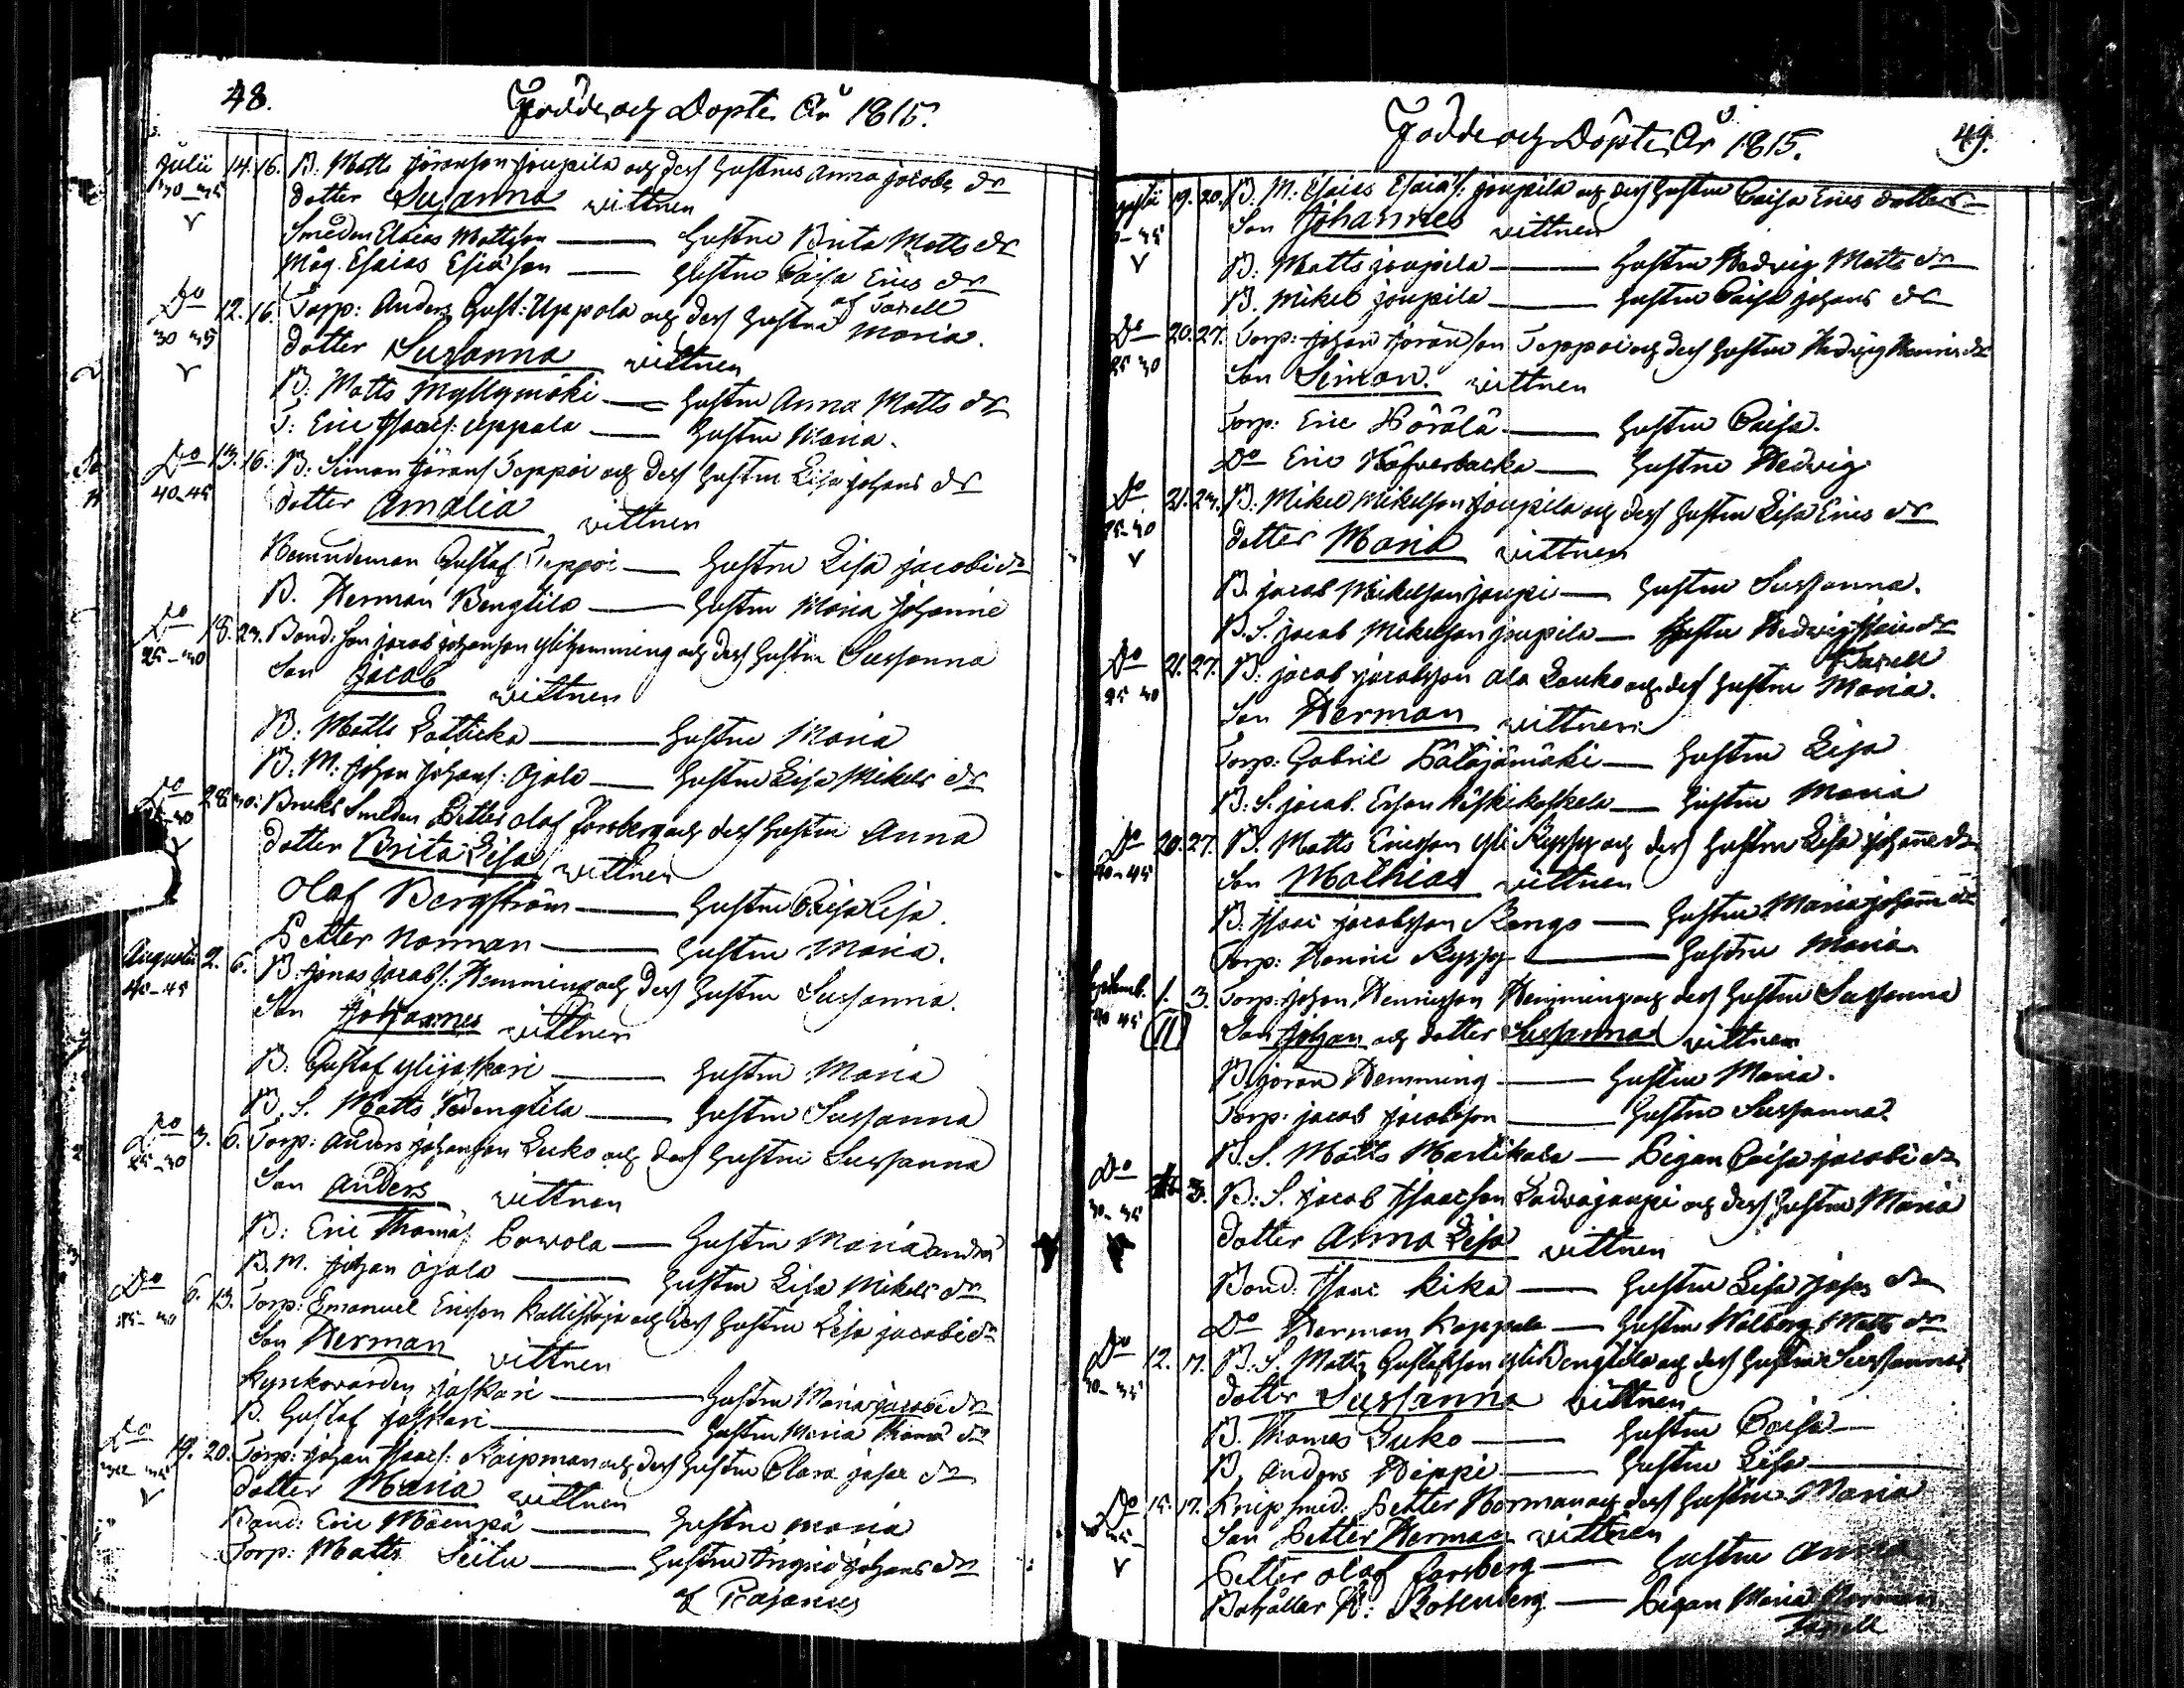 48.
Födde och Döpte År 1815.
Julii 14. 16. B. Matts Jöranson Joupila och dess Hustrus Anna Jacobs dr
30_35 dotter Susanna vittnen
Smeden Elaias Mattson — Hustru Brita Matts dr
Måg. Esaias Esiason — Hustru Caisa Erics dr
Do 12. 16. Torp: Anders Gust: Uppola och dess Hustru Maria. af Taxell
30 35 dotter Susanna vittnen
B: Matts Myllymäki — Hustru Anna Matts dr
T: Eric Isacs: Uppala — Hustru Maria.
Do 13. 16. B. Simon Jörans Teppoi och dess Hustru Lisa Johans dr
40_45 dotter Amalia vittnen
Gustaf Teppoi — Hustru Lisa Jacobi dr
B. Herman Bengtila — Hustru Maria Johanne
Do 18. 23. Bond: Son Jacob Johanson Ylihemming och dess Hustru Sussanna
25_30 Son Jacob vittnen
B: Matts Latticka — Hustru Maria
B. M: Johan Johans: Ojala — Hustru Lisa Mikels dr
Do 28. 30. Bruks Smeden Petter Olof Forsberg och dess Hustru Anna
dotter Brita Lisa vittnen
Olof Bergström — Hustru Caisa Lisa.
Petter Norman — Hustru Maria.
Augustii 2. 6. B. Jonas Jacobs: Hemming och dess Hustru Sussanna.
40-45 Son Johannes vittnen
B. Gustaf Ylijaskari — Hustru Maria
B. S. Matts — Hustru Sussanna
Do 3. 6. Torp: Anders Johanson Luko och dess Hustru Sussanna
25_30 Son Anders vittnen
B: Eric Thomas Powola — Hustru Maria Anders
B. M. Johan Ojala — Hustru Lisa Mikels dr
Do 6. 13. Torp: Emanuel Ericson Kallisoja och dess Hustru Lisa Jacobi dr
25-30 Son Herman vittnen
Kyrkovärden Jaskari — Hustru Maria Jacobi dr
B. Gustaf Jaskari — Hustru Maria Thoma dr
Do 19. 20. Torp: Johan Isacs: Knipman och dess Hustru Clara Josae dr
dotter Maria vittnen
Bond: Eric Mäenpä — Hustru Maria
Torp: Matts Leitu — Hustru Ingrid Johans dr
af
Födde och Döpte År 1815.
49.
19. 20. B. M. Esaias Esaias: Joupila och dess Hustru Caisa Erics dotters
Son Johannes vittnen
B. Matts Joupila — Hustru Hedvig Matts dr
B. Mikel Joupila — Hustru Caisa Johans dr
Do 20. 27. Torp: Johan Jöranson Teppoi och dess Hustru Hedvig Henrics dr
25 30 Son Simon. vittnen
Torp: Eric Pörälä — Hustru Caisa.
Do Eric Höfverbacka — Hustru Hedvig
Do 21. 23. B. Mikel Mikelson Joupila och dess Hustru Lisa Erics dr
25-30 dotter Maria vittnen
B. Jacob Mikelson Joupi — Hustru Sussanna.
B. S. Jacob Mikelson Joupila — Hustru Hedvig Esaiae dr
Do 21. 27. B. Jacob Jacobsson Ala Louko och dess Hustru Maria. Taxell
25 30 Son Herman vittnen
Torp: Gabriel Pätäjämäki — Hustru Lisa
B: S. Jacob Erson Köykikoskela — Hustru Maria
Do 20. 27. B. Matts Ericson Yli Ryssy och dess Hustru Lisa Johanne dr
40-45 Son Mathias vittnen
B. Isaac Jacobsson Rengo — Hustru Maria Johann dr
Torp: Henric Ryssy — Hustru Maria
Septemb. 1. 3. Torp: Johan Henricson Hemming och dess Hustru Sussanna
40 45 Son Johan och dotter Sussanna vittnen
B. Jöran Hemming — Hustru Maria.
Torp: Jacob Jacobsson — Hustru Sussanna
B. S. Matts Martikala — Pigan Caisa Jacobi dr
Do 3. B: S. Jacob Isacson Latvajoupi och dess Hustru Maria
30-35 dotter Anna Lisa vittnen
Bond: Isaac Kika — Hustru Lisa Josep dr
Do Herman Koppala — Hustru Walborg Matts dr
Do 12. 17. B. S. Matts Gustafson Yli Bengtila och dess Hustru Sussannas
30-35 dotter Sussanna vittnen
B. Thomas Luko — Hustru Caisa
B. Anders Heippi — Hustru Lisa
Do 15. 17. Knip Smed: Petter Norman och dess Hustru Maria
Son Petter Herman vittnen
Petter Olof Forsberg — Hustru Anna
Bokhållar A: Rosenberg — Pigan Maria Norman
Taxell